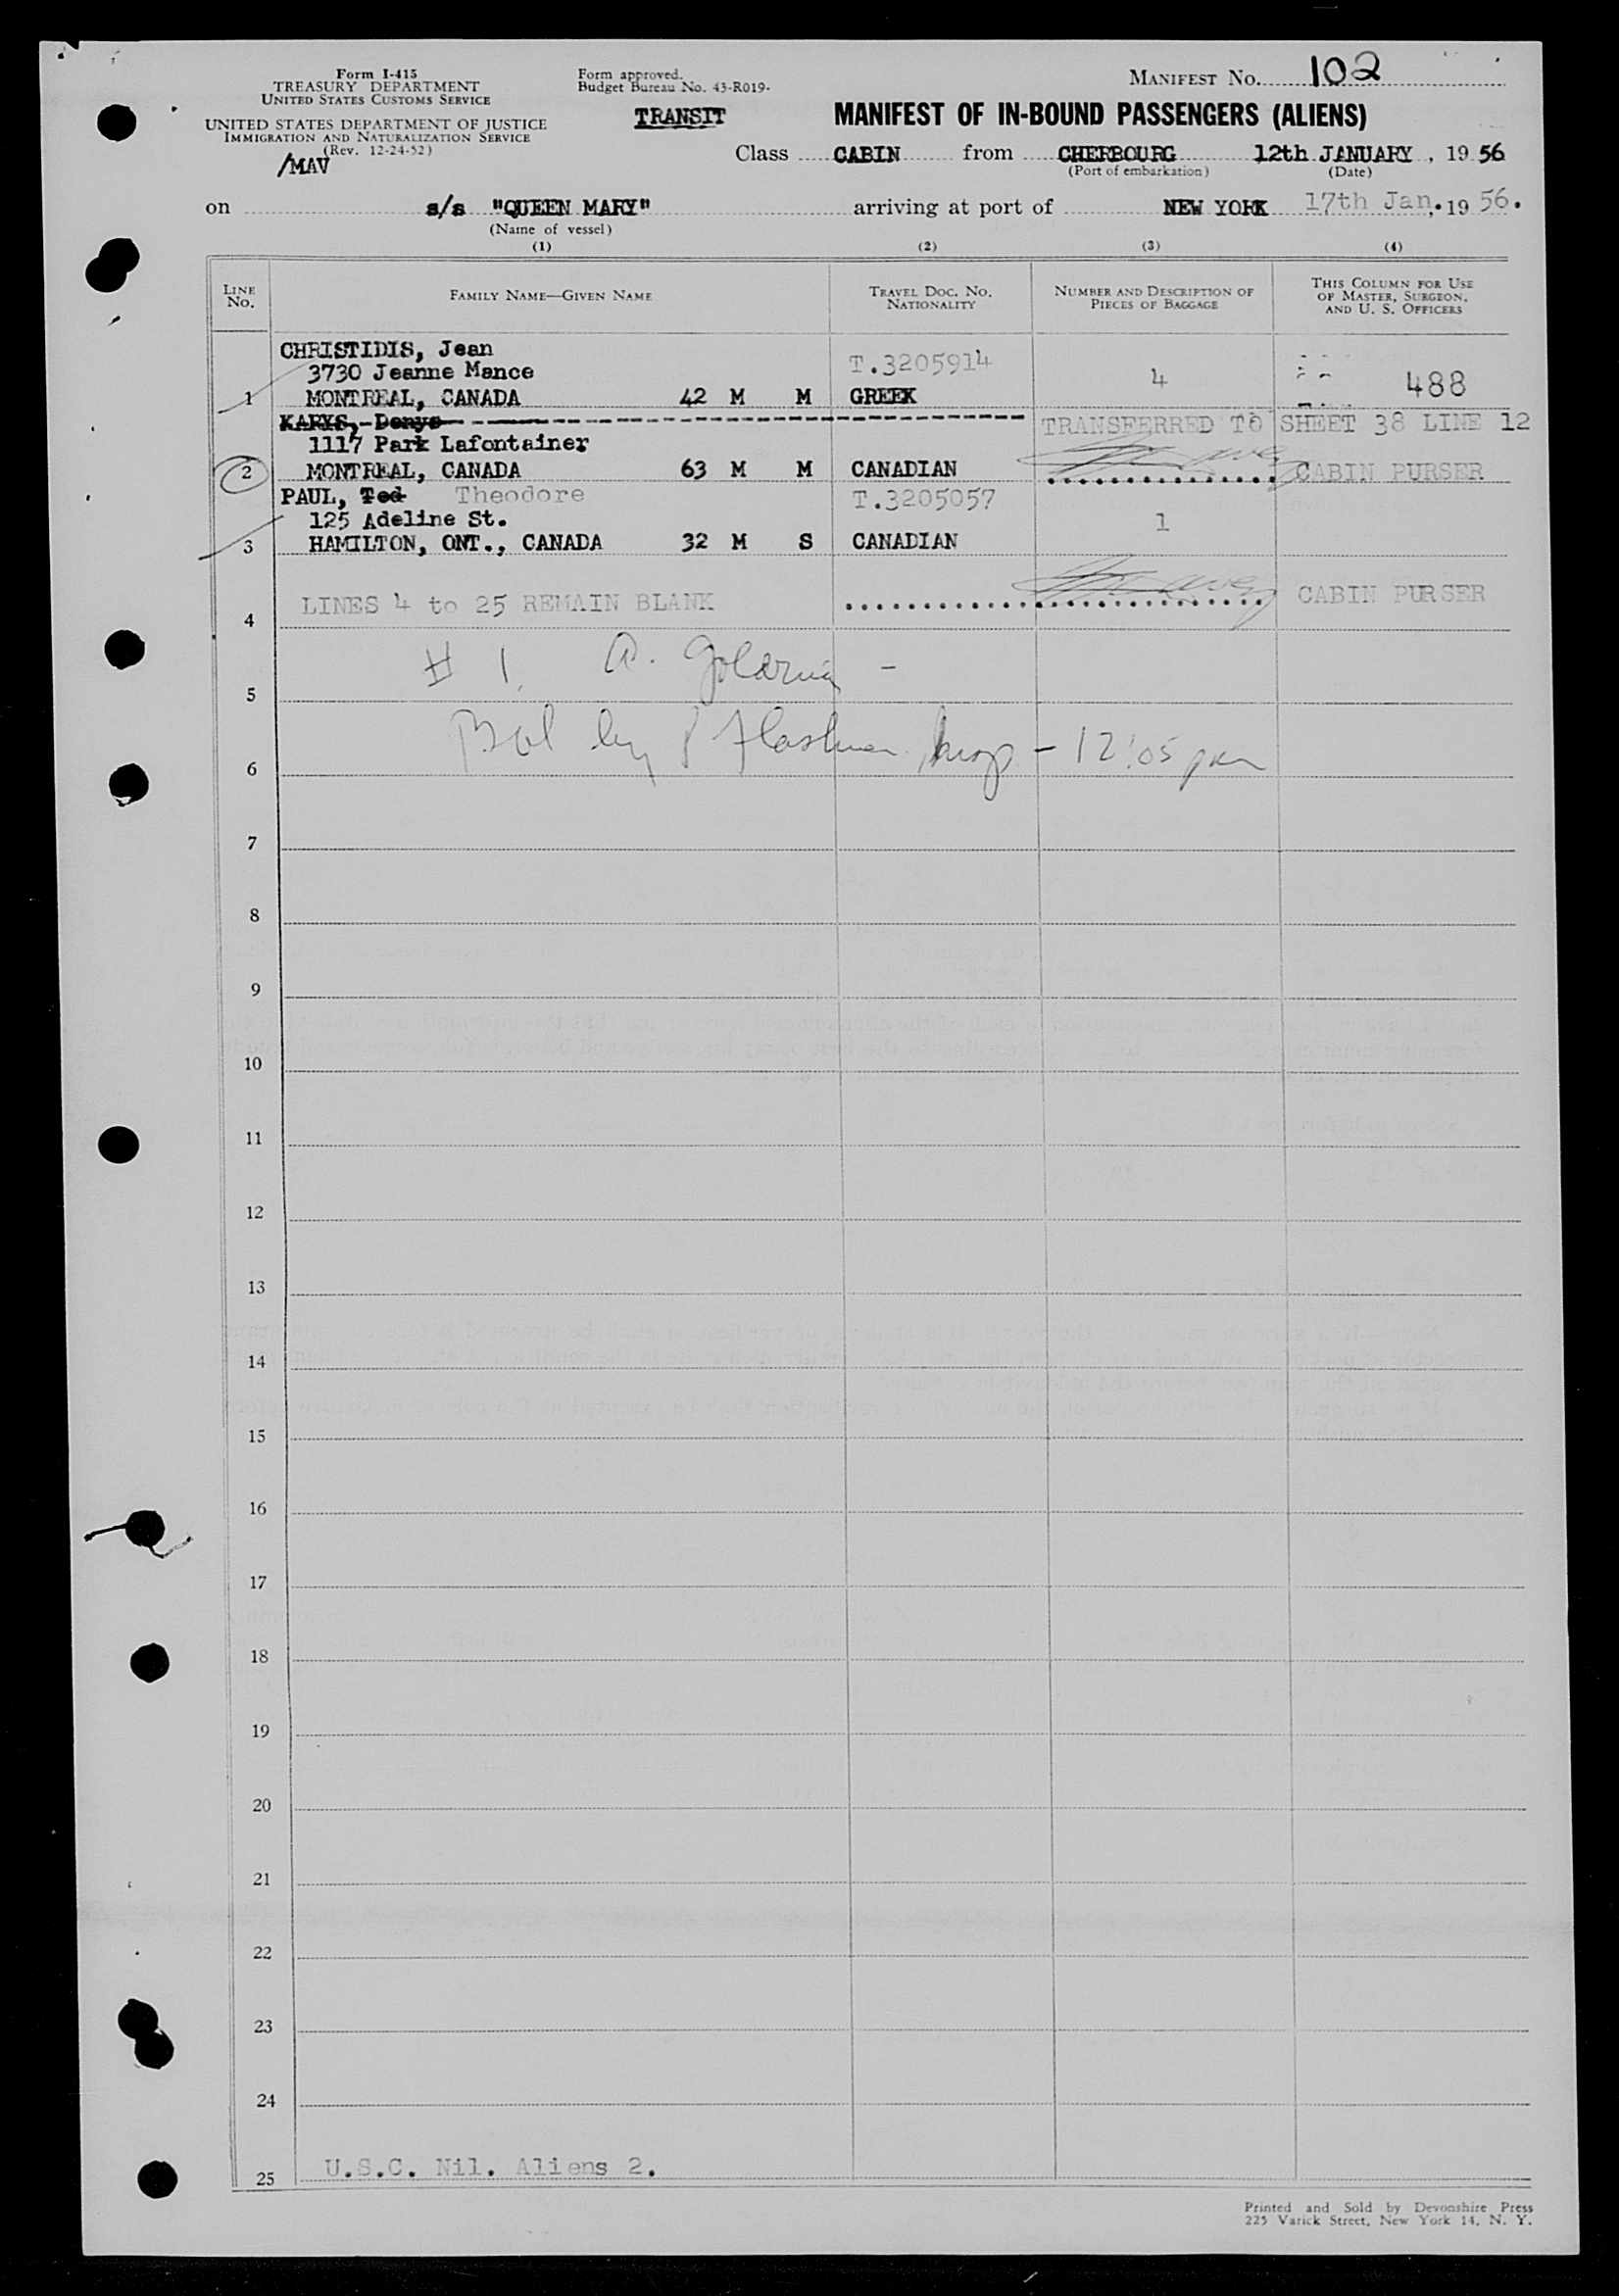 Form I-415
TREASURY DEPARTMENT
UNITED STATES CUSTOMS SERVICE
UNITED STATES DEPARTMENT OF JUSTICE
IMMIGRATION AND NATURALIZATION SERVICE
(Rev. 12-24-52)
/MAV
Form approved.
Budget Bureau No. 43-R019-
TRANSIT
MANIFEST NO. 102
MANIFEST OF IN-BOUND PASSENGERS (ALIENS)
Class CABIN from CHERBOURG 12th JANUARY, 19 56
(Port of embarkation) (Date)
on s/s "QUEEN MARY" arriving at port of NEW YORK 17th Jan. 19 56.
(Name of vessel)
(1) (2) (3) (4)
LINE NO. FAMILY NAME—GIVEN NAME TRAVEL DOC. NO. NATIONALITY NUMBER AND DESCRIPTION OF PIECES OF BAGGAGE THIS COLUMN FOR USE OF MASTER, SURGEON, AND U. S. OFFICERS
CHRISTIDIS, Jean T.3205914
3730 Jeanne Mance 4 488
1 MONTREAL, CANADA 42 M M GREEK
KARYS, Denys TRANSFERRED TO SHEET 38 LINE 12
1117 Park Lafontainer
2 MONTREAL, CANADA 63 M M CANADIAN CABIN PURSER
PAUL, Ted Theodore T.3205057
125 Adeline St. 1
3 HAMILTON, ONT., CANADA 32 M S CANADIAN
LINES 4 to 25 REMAIN BLANK CABIN PURSER
4
# 1. A.
5
by - 12:05 pm
6
7
8
9
10
11
12
13
14
15
16
17
18
19
20
21
22
23
24
25 U.S.C. Nil. Aliens 2.
Printed and Sold by Devonshire Press
225 Varick Street, New York 14, N. Y.